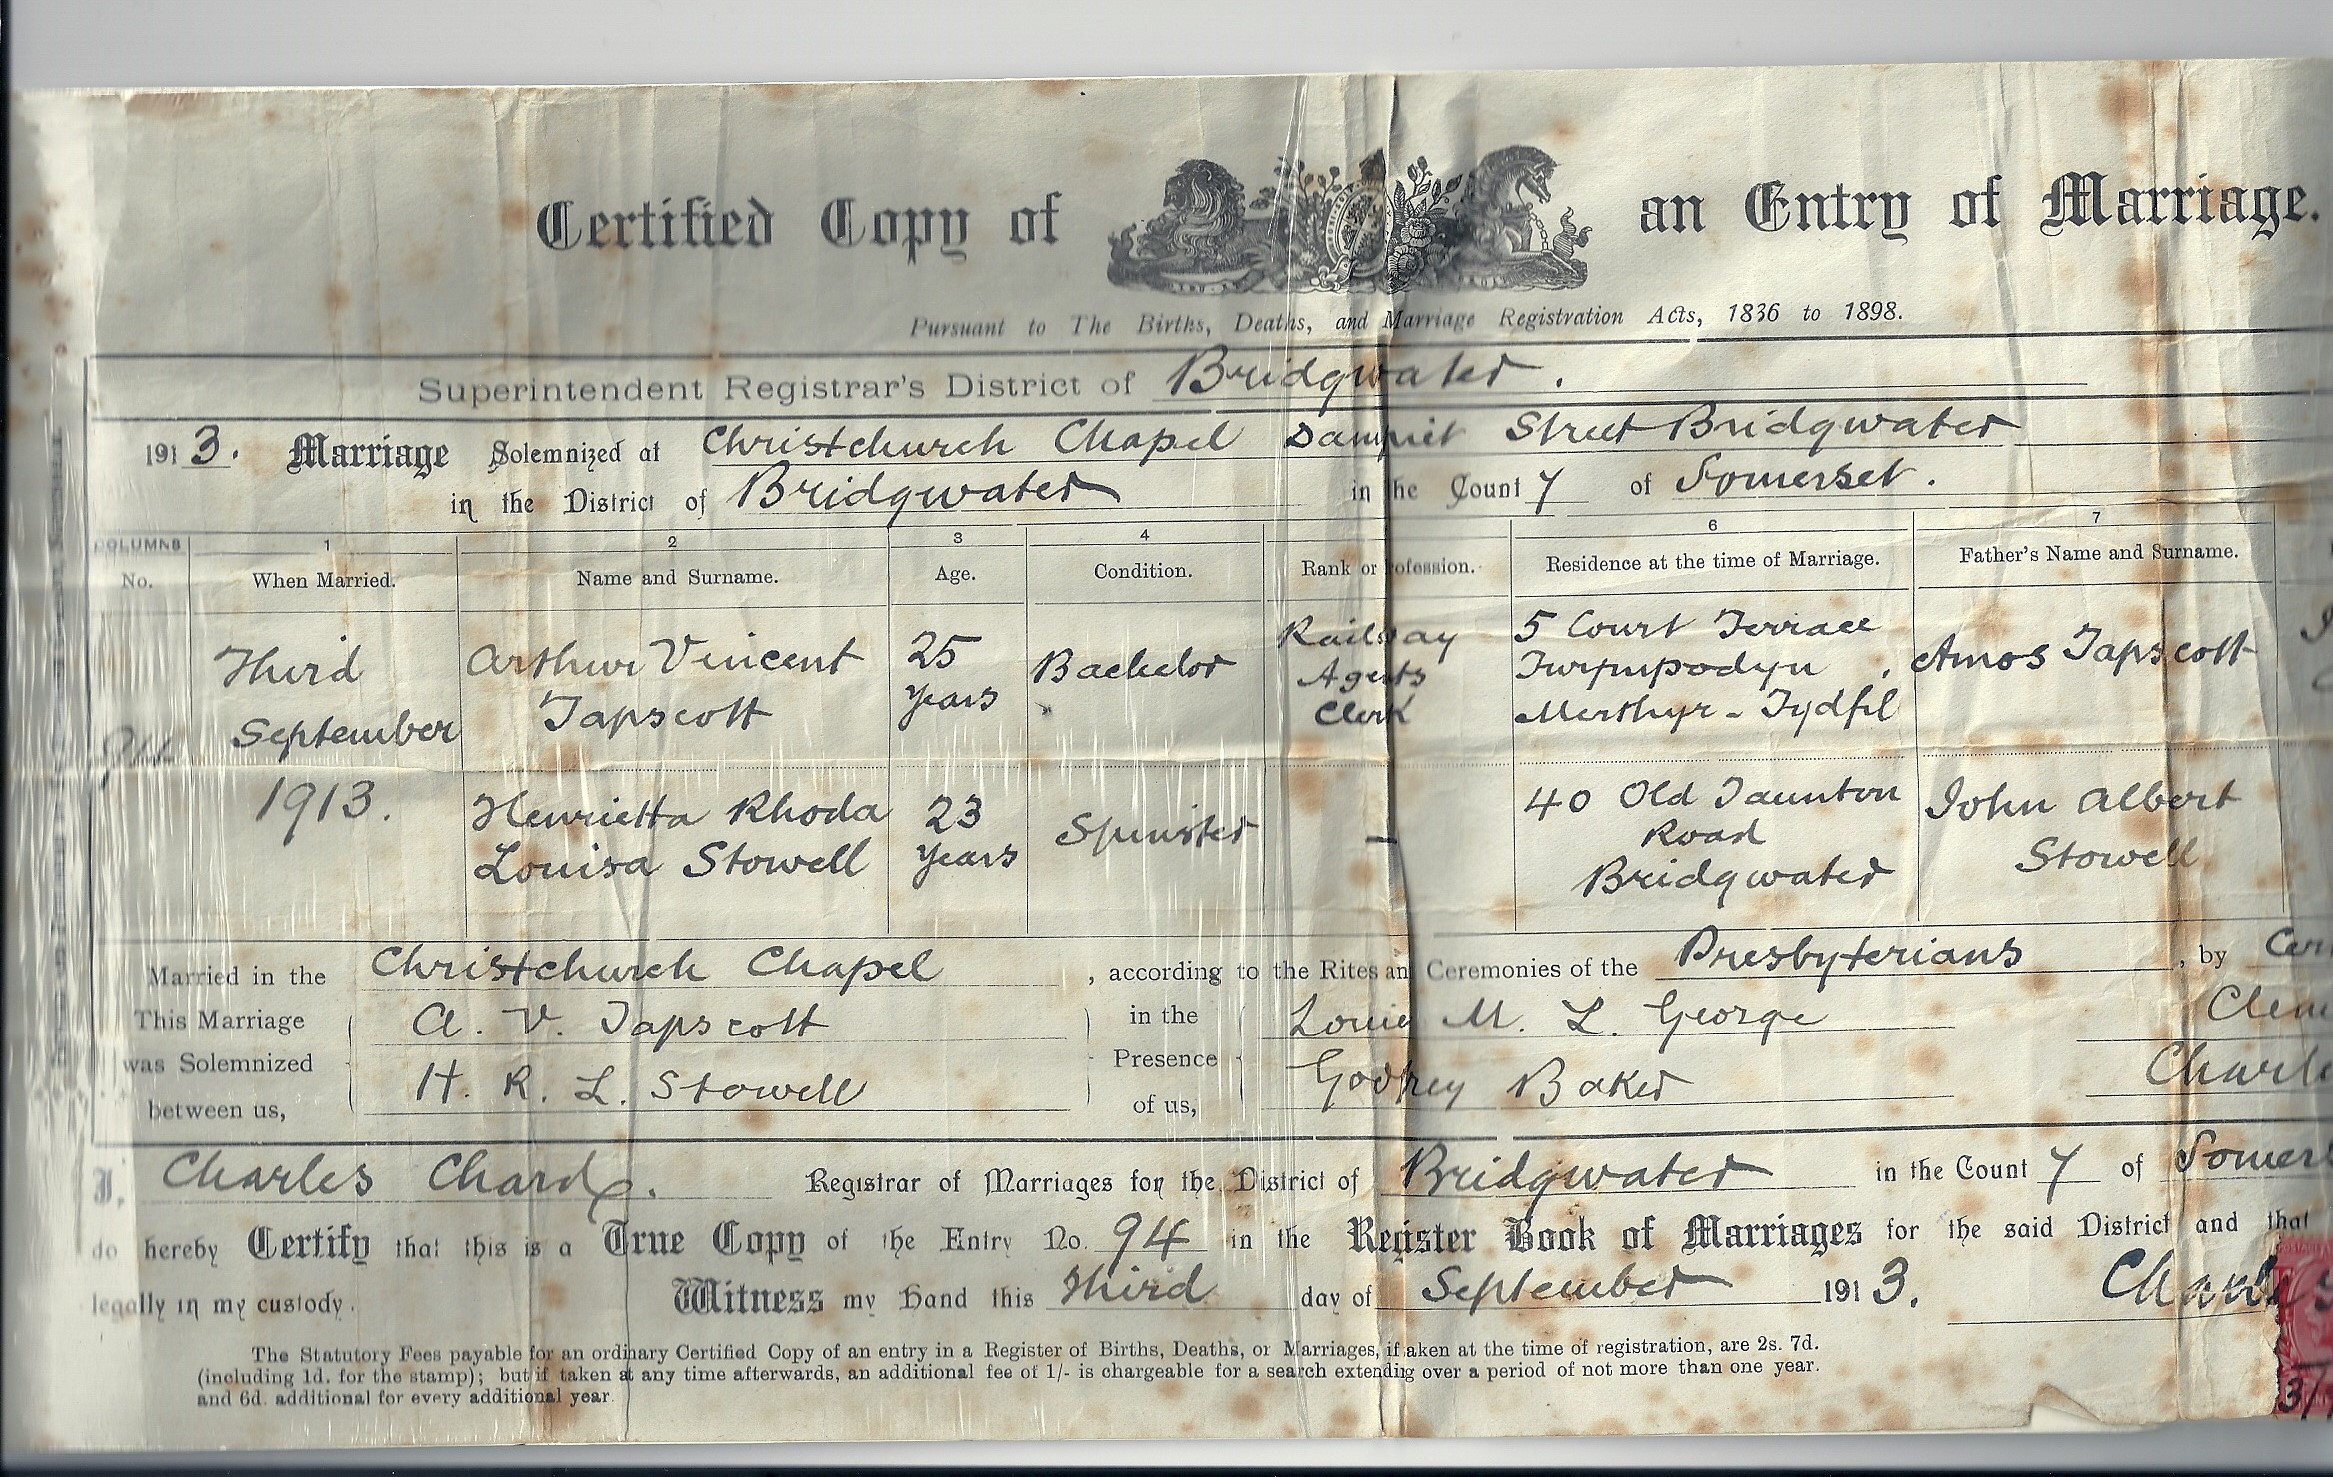 Certified Copy of an Entry of Marriage.
Pursuant to The Births, Deaths, and Marriage Registration Acts, 1836 to 1898.
Superintendent Registrar's District of Bridgwater.
1913. Marriage Solemnized at Christchurch Chapel Dampiet Street Bridgwater
in the District of Bridgwater in the County of Somerset.
COLUMNS 1 2 3 4 6 7
No. When Married. Name and Surname. Age. Condition. Rank or ofession. Residence at the time of Marriage. Father's Name and Surname.
94 Third September 1913. Arthur Vincent Tapscott 25 years Bachelor Railway Agents Clerk 5 Court Terrace Twynyrodyn Merthyr-Tydfil Amos Tapscott
Henrietta Rhoda Louisa Stowell 23 years Spinster — 40 Old Taunton Road Bridgwater John Albert Stowell
Married in the Christchurch Chapel, according to the Rites an Ceremonies of the Presbyterians, by Cer
This Marriage was Solemnized between us, A. V. Tapscott in the Presence of us, Louie M. L. George Clem
H. R. L. Stowell Godfrey Baker Charle
I, Charles Chard. Registrar of Marriages for the District of Bridgwater in the County of Somers
do hereby Certify that this is a True Copy of the Entry No. 94 in the Register Book of Marriages for the said District and that
legally in my custody. Witness my Hand this Third day of September 1913. Charles
The Statutory Fees payable for an ordinary Certified Copy of an entry in a Register of Births, Deaths, or Marriages, if aken at the time of registration, are 2s. 7d.
(including 1d. for the stamp); but if taken at any time afterwards, an additional fee of 1/- is chargeable for a search extending over a period of not more than one year.
and 6d. additional for every additional year.